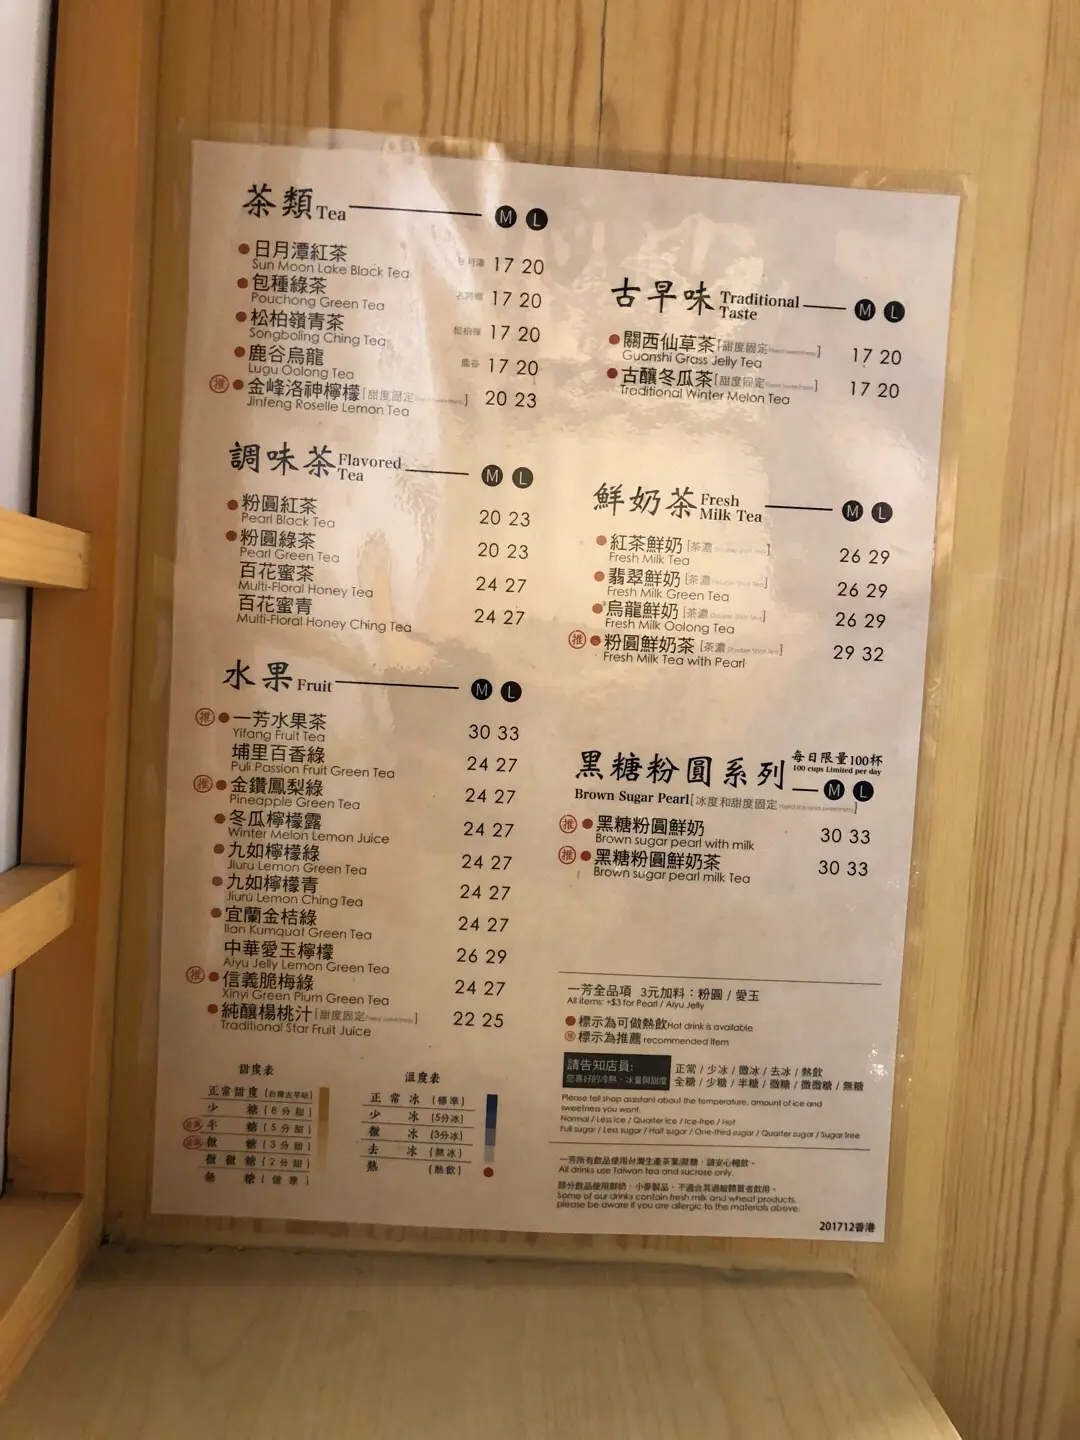 茶類 Tea M L
日月潭紅茶 日月潭 17 20
Sun Moon Lake Black Tea
包種綠茶 17 20
Pouchong Green Tea
松柏嶺青茶 松柏嶺 17 20
Songboling Ching Tea
鹿谷烏龍 鹿谷 17 20
Lugu Oolong Tea
推 金峰洛神檸檬[甜度固定] 20 23
Jinfeng Roselle Lemon Tea
調味茶 Flavored Tea M L
粉圓紅茶 20 23
Pearl Black Tea
粉圓綠茶 20 23
Pearl Green Tea
百花蜜茶 24 27
Multi-Floral Honey Tea
百花蜜青 24 27
Multi-Floral Honey Ching Tea
水果 Fruit M L
推 一芳水果茶 30 33
Yifang Fruit Tea
埔里百香綠 24 27
Puli Passion Fruit Green Tea
推 金鑽鳳梨綠 24 27
Pineapple Green Tea
冬瓜檸檬露 24 27
Winter Melon Lemon Juice
九如檸檬綠 24 27
Jiuru Lemon Green Tea
九如檸檬青 24 27
Jiuru Lemon Ching Tea
宜蘭金桔綠 24 27
Ilan Kumquat Green Tea
中華愛玉檸檬 26 29
Aiyu Jelly Lemon Green Tea
推 信義脆梅綠 24 27
Xinyi Green Plum Green Tea
純釀楊桃汁[甜度固定] 22 25
Traditional Star Fruit Juice
甜度表
正常甜度(台灣古早味)
少 糖(8分甜)
半 糖(5分甜)
微 糖(3分甜)
微微糖(2分甜)
無 糖(健康)
溫度表
正常冰(標準)
少 冰(5分冰)
微 冰(3分冰)
去 冰(無冰)
熱 (熱飲)
古早味 Traditional Taste M L
關西仙草茶[甜度固定] 17 20
Guanshi Grass Jelly Tea
古釀冬瓜茶[甜度固定] 17 20
Traditional Winter Melon Tea
鮮奶茶 Fresh Milk Tea M L
紅茶鮮奶[茶濃] 26 29
Fresh Milk Tea
翡翠鮮奶[茶濃] 26 29
Fresh Milk Green Tea
烏龍鮮奶[茶濃] 26 29
Fresh Milk Oolong Tea
推 粉圓鮮奶茶[茶濃] 29 32
Fresh Milk Tea with Pearl
黑糖粉圓系列 每日限量100杯
100 cups Limited per day
M L
Brown Sugar Pearl[冰度和甜度固定]
推 黑糖粉圓鮮奶 30 33
Brown sugar pearl with milk
推 黑糖粉圓鮮奶茶 30 33
Brown sugar pearl milk Tea
一芳全品項 3元加料：粉圓 / 愛玉
All items: +$3 for Pearl / Aiyu Jelly
標示為可做熱飲 Hot drink is available
推 標示為推薦 recommended item
請告知店員: 正常 / 少冰 / 微冰 / 去冰 / 熱飲
您喜好的冷熱、冰量與甜度 全糖 / 少糖 / 半糖 / 微糖 / 微微糖 / 無糖
Please tell shop assistant about the temperature, amount of ice and
sweetness you want.
Normal / Less ice / Quarter ice / Ice-free / Hot
Full sugar / Less sugar / Half sugar / One-third sugar / Quarter sugar / Sugar free
一芳所有飲品使用台灣生產茶葉/蔗糖，請安心暢飲。
All drinks use Taiwan tea and sucrose only.
部分飲品使用鮮奶、小麥製品，不適合其過敏體質者飲用。
Some of our drinks contain fresh milk and wheat products,
please be aware if you are allergic to the materials above.
201712香港